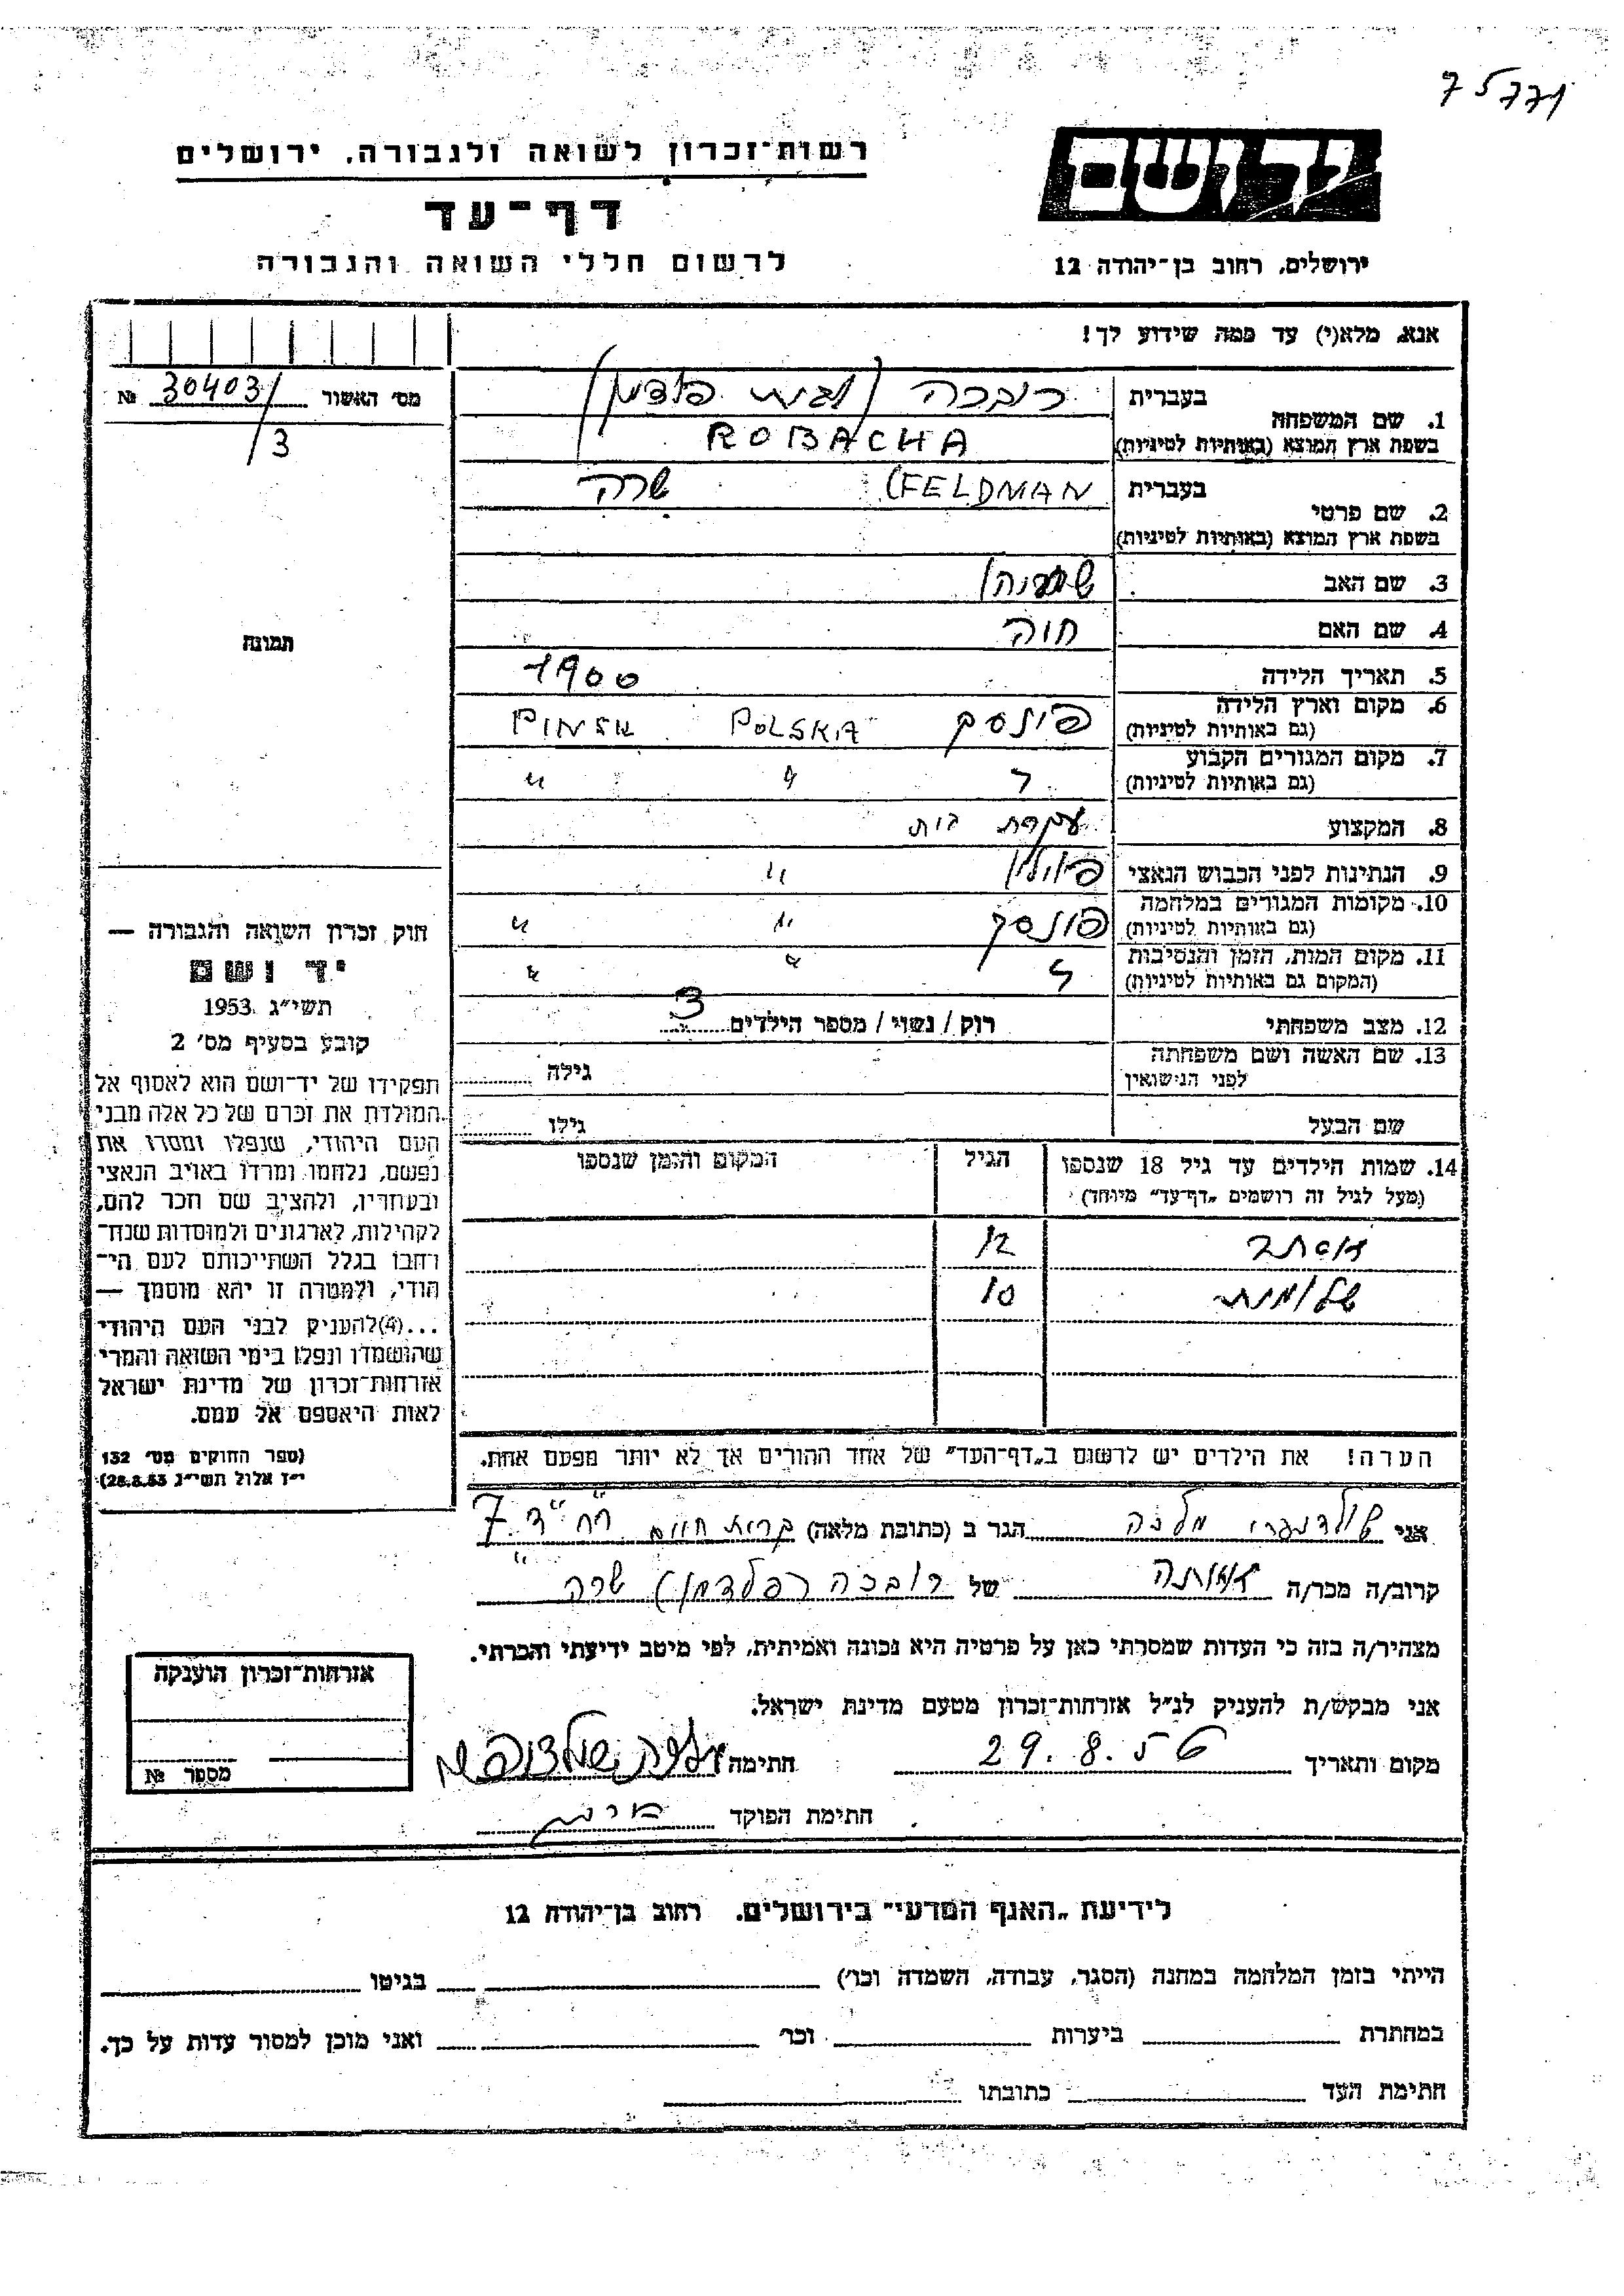 75771
רשות־זכרון לשואה ולגבורה, ירושלים
יד ושם
דף־עד
לרשום חללי השואה והגבורה
ירושלים, רחוב בן־יהודה 12
אנא, מלא(י) עד כמה שידוע לך!
מס׳ האשור № 30403/
/3
1. שם המשפחה
בעברית רובכה (לבית פלדמן)
בשפת ארץ המוצא (באותיות לטיניות) ROBACHA
2. שם פרטי
בעברית (FELDMAN שרה
בשפת ארץ המוצא (באותיות לטיניות)
3. שם האב
4. שם האם חוה
5. תאריך הלידה 1900
6. מקום וארץ הלידה פינסק POLSKA PINSK
(גם באותיות לטיניות)
7. מקום המגורים הקבוע " "
(גם באותיות לטיניות)
8. המקצוע עקרת בית
9. הנתינות לפני הכבוש הנאצי פולין "
10. מקומות המגורים במלחמה פינסק " "
(גם באותיות לטיניות)
11. מקום המות, הזמן והנסיבות " "
(המקום גם באותיות לטיניות)
12. מצב משפחתי רוק / נשוי / מספר הילדים 3
13. שם האשה ושם משפחתה גילה
לפני הנישואין
שם הבעל גילו
14. שמות הילדים עד גיל 18 שנספו הגיל המקום והזמן שנספו
(מעל לגיל זה רושמים „דף־עד״ מיוחד)
אסתר 12
שלומית 10
הערה! את הילדים יש לרשום ב„דף־העד״ של אחד ההורים אך לא יותר מפעם אחת.
תמונה
חוק זכרון השואה והגבורה —
יד ושם
תשי״ג 1953
קובע בסעיף מס׳ 2
תפקידו של יד־ושם הוא לאסוף אל
המולדת את זכרם של כל אלה מבני
העם היהודי, שנפלו ומסרו את
נפשם, נלחמו ומרדו באויב הנאצי
ובעוזריו, ולהציב שם וזכר להם,
לקהילות, לארגונים ולמוסדות שנח־
רבו בגלל השתייכותם לעם הי־
הודי, ולמטרה זו יהא מוסמך —
...(4) להעניק לבני העם היהודי
שהושמדו ונפלו בימי השואה והמרי
אזרחות־זכרון של מדינת ישראל
לאות היאספם אל עמם.
(ספר החוקים מס׳ 132
י״ז אלול תשי״ג 28.8.53)
אני מלכה הגר ב (כתובת מלאה) קרית חיים 7
קרוב/ה מכר/ה של רובכה (פלדמן) שרה
מצהיר/ה בזה כי העדות שמסרתי כאן על פרטיה היא נכונה ואמיתית, לפי מיטב ידיעתי והכרתי.
אני מבקש/ת להעניק לנ״ל אזרחות־זכרון מטעם מדינת ישראל.
מקום ותאריך 29.8.56 חתימה
חתימת הפוקד
אזרחות־זכרון הוענקה
מספר №
לידיעת „האגף המדעי״ בירושלים, רחוב בן־יהודה 12
הייתי בזמן המלחמה במחנה (הסגר, עבודה, השמדה וכו׳) בגיטו
במחתרת ביערות וכו׳ ואני מוכן למסור עדות על כך.
חתימת העד כתובתו